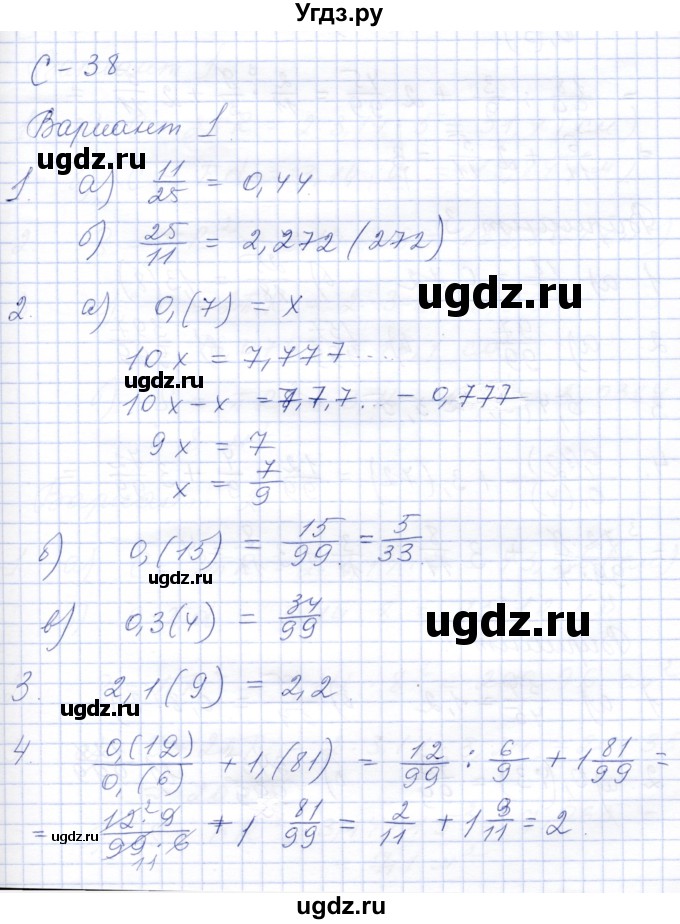 Угдз.ру
С-38.
Вариант 1.
ugdz.ru
1. а) 11/25 = 0,44.
б) 25/11 = 2,272(272)
ugdz.ru
ugdz.ru
2. а) 0,(7) = x
10x = 7,777....
ugdz.ru
10x-x = 7,7,7... - 0,777
9x = 7
x = 7/9
ugdz.ru
б) 0,(15) = 15/99 = 5/33
ugdz.ru
в) 0,3(4) = 34/99
ugdz.ru
3. 2,1(9) = 2,2.
ugdz.ru
4 0,(12)/0,(6) + 1,(81) = 12/99 : 6/9 + 1 81/99 =
ugdz.ru
= 12²·9/99·6 11 + 1 81/99 = 2/11 + 1 9/11 = 2.
ugdz.ru